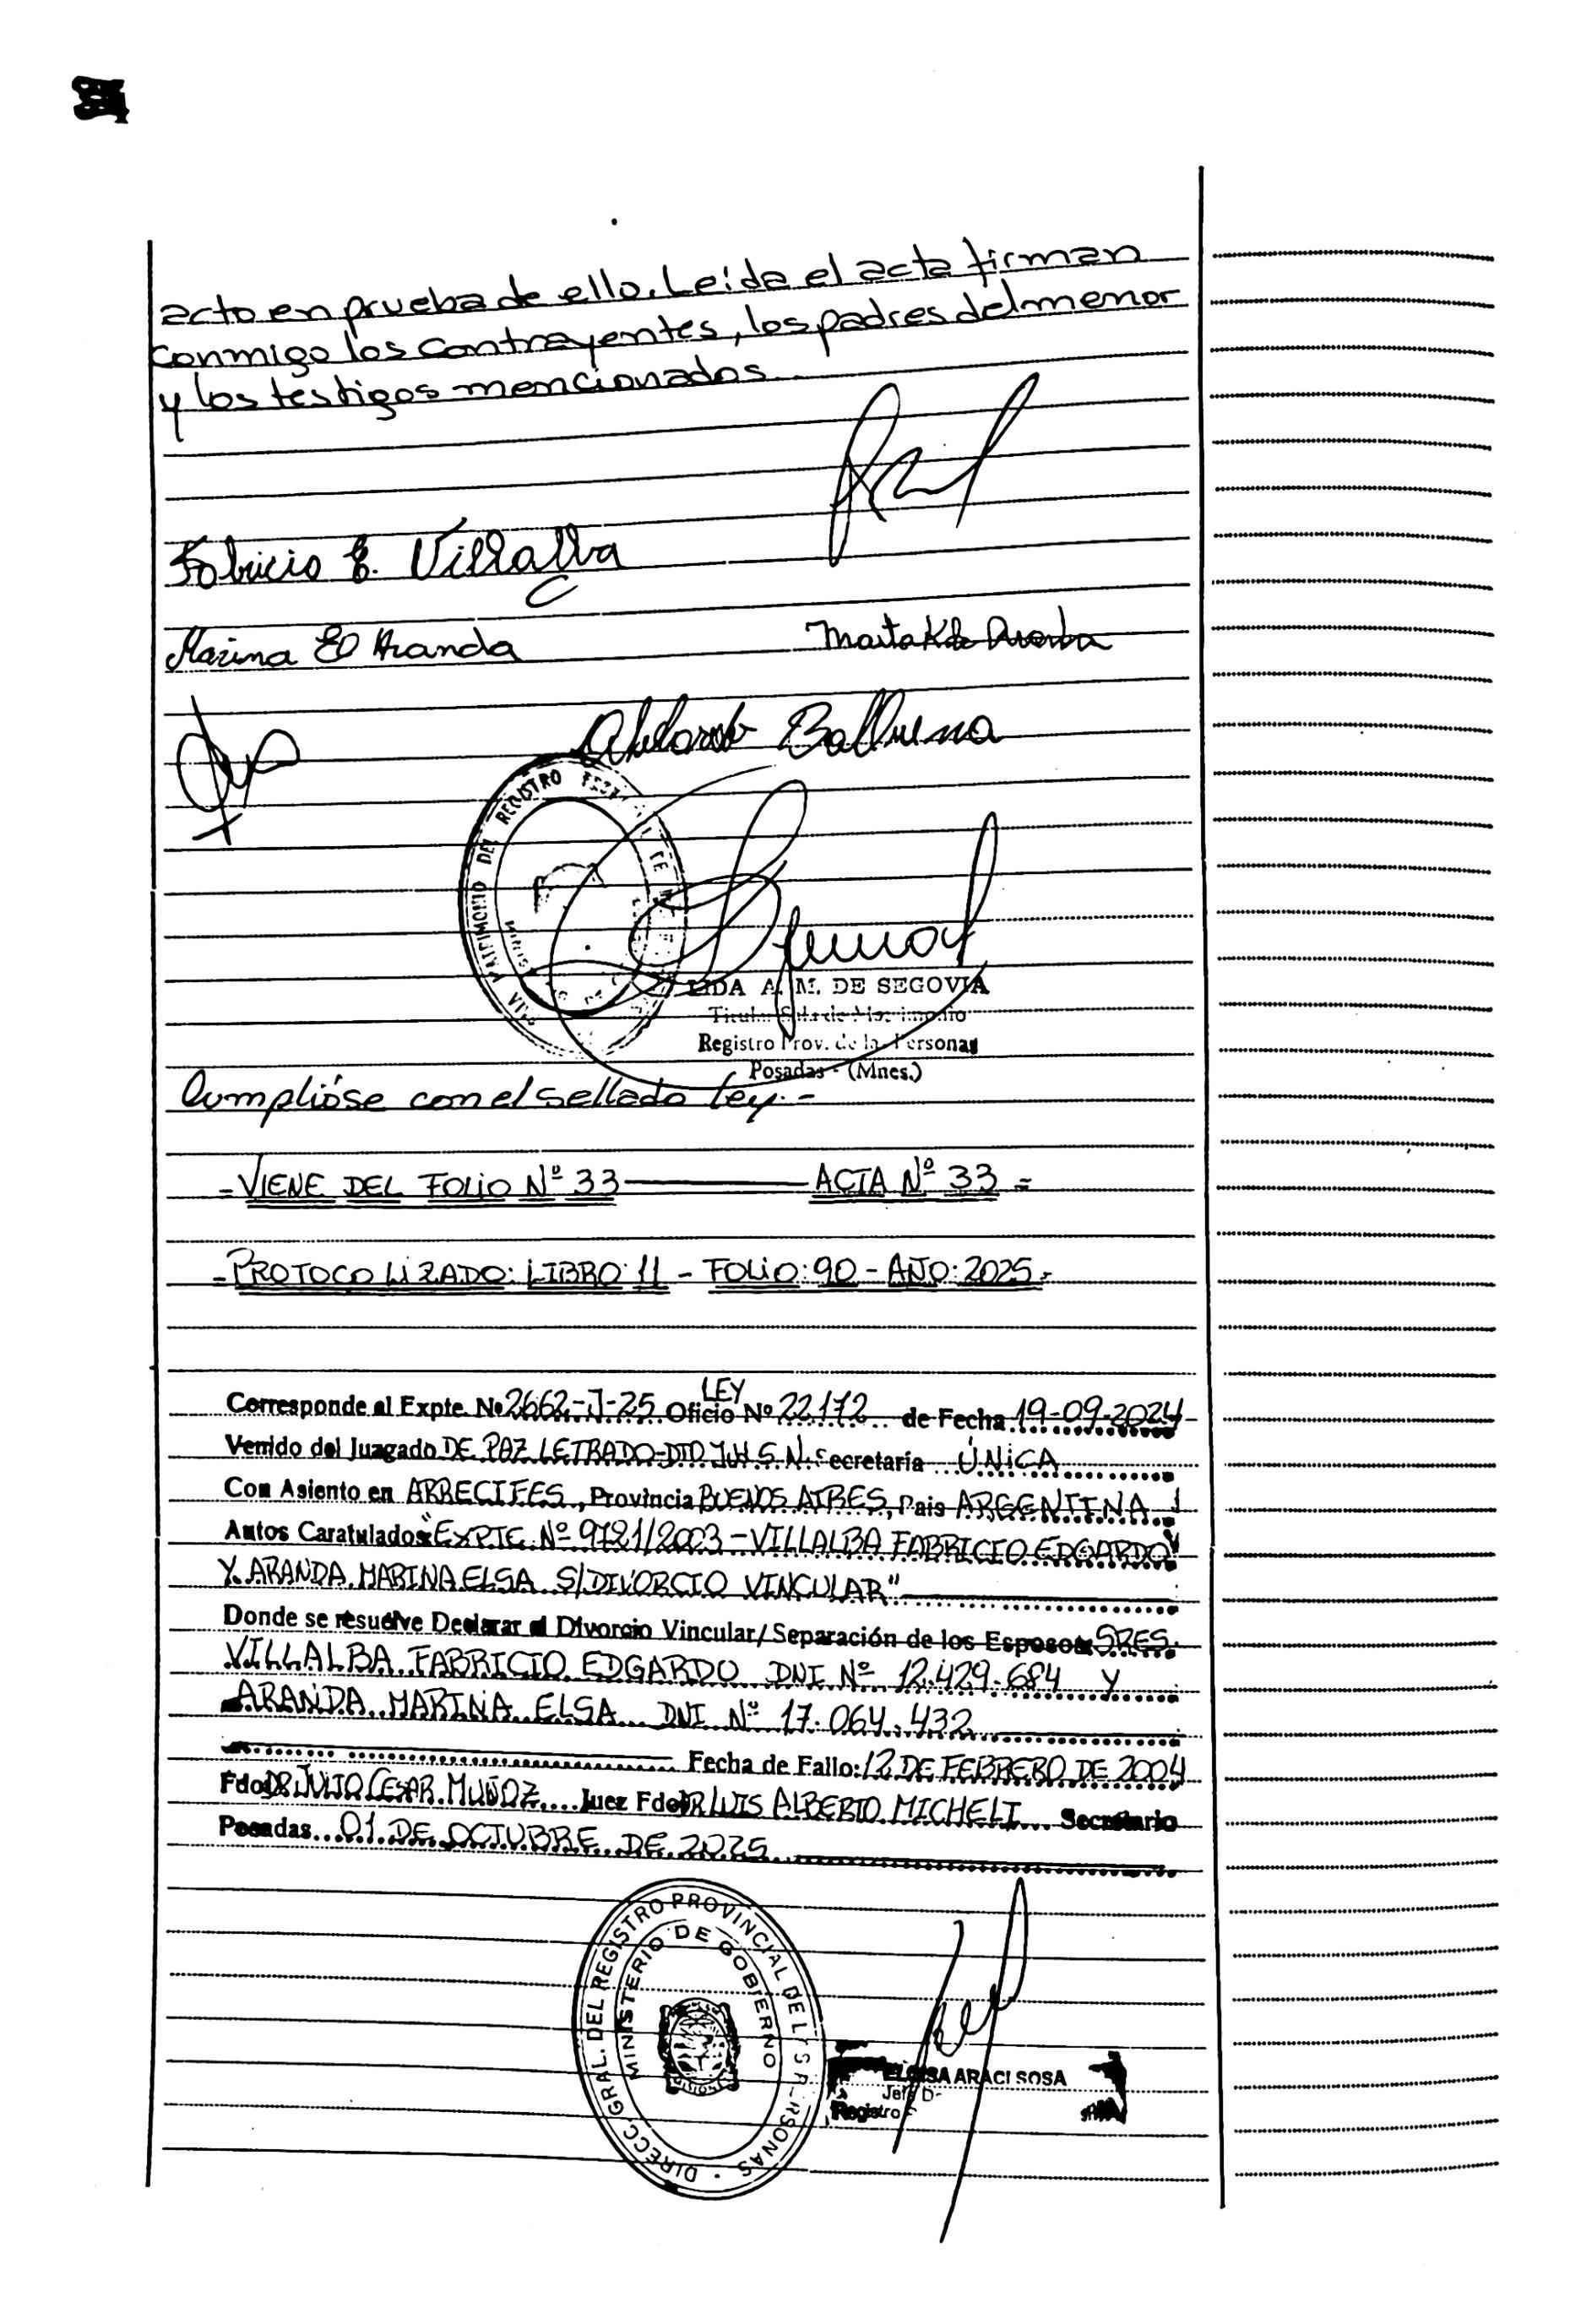 acto en prueba de ello. Leída el acta firman
conmigo los contrayentes, los padres del menor
y los testigos mencionados
Fabricio E. Villalba
Marina E Aranda
Marta K de
Abelardo Balbuena
DEL REGISTRO
LIDA A. M. DE SEGOVIA
Registro Prov. de las Personas
Posadas - (Mnes.)
Cumplióse con el sellado ley.-
- VIENE DEL FOLIO Nº 33 ——— ACTA Nº 33 =
- PROTOCOLIZADO: LIBRO: 11 - FOLIO: 90 - AÑO: 2025.-
LEY
Corresponde al Expte. Nº 2662-J-25 Oficio Nº 22.172 de Fecha 19-09-2024
Venido del Juagado DE PAZ LETRADO - Secretaría ÚNICA
Con Asiento en ARRECIFES, Provincia BUENOS AIRES, Pais ARGENTINA
Autos Caratulados "EXPTE. Nº 9721/2003 - VILLALBA FABRICIO EDGARDO
Y ARANDA MARINA ELSA S/DIVORCIO VINCULAR"
Donde se resuelve Declarar el Divorcio Vincular/Separación de los Esposos: SRES.
VILLALBA FABRICIO EDGARDO DNI Nº 12.429.684 Y
ARANDA MARINA ELSA DNI Nº 17.064.432
Fecha de Fallo: 12 DE FEBRERO DE 2004
Fdo DR JULIO CESAR MUÑOZ Juez Fdo DR LUIS ALBERTO MICHELI Secretario
Posadas 01 DE OCTUBRE DE 2025
DIRECC. GRAL. DEL REGISTRO PROVINCIAL DE LAS PERSONAS
MINISTERIO DE GOBIERNO
MISIONES
ELOISA ARACI SOSA
Registro